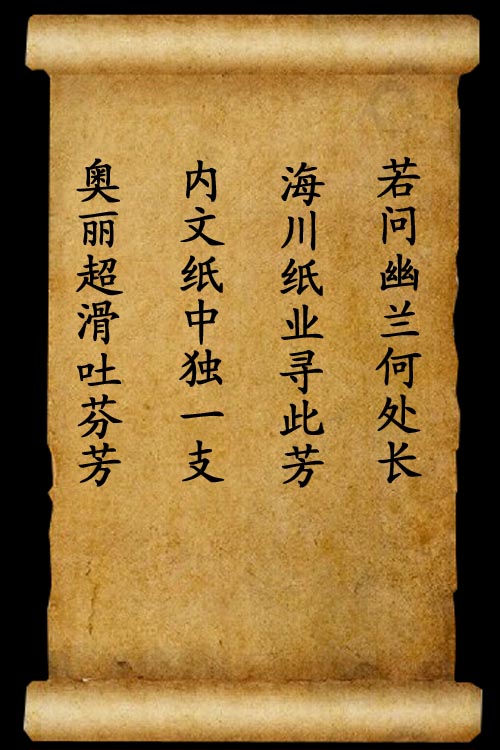 若问幽兰何处长
海川纸业寻此芳
内文纸中独一支
奥丽超滑吐芬芳